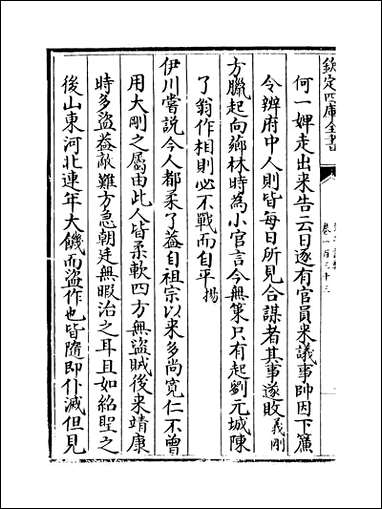 欽定四庫全書
卷一百三十三
何一婢走出来告云日逐有官員来議事帥因下簾
令辨府中人則皆每日所見合謀者其事遂敗義剛
方臘起向鄉林時為小官言今無策只有起劉元城陳
了翁作相則必不戰而自平揚
伊川嘗説今人都柔了葢自祖宗以来多尚寛仁不曾
用大刚之屬由此人皆柔軟四方無盗賊後来靖康
時多盗葢敵難方急朝廷無暇治之耳且如紹聖之
後山東河北連年大饑而盗作也皆隨即仆滅但見